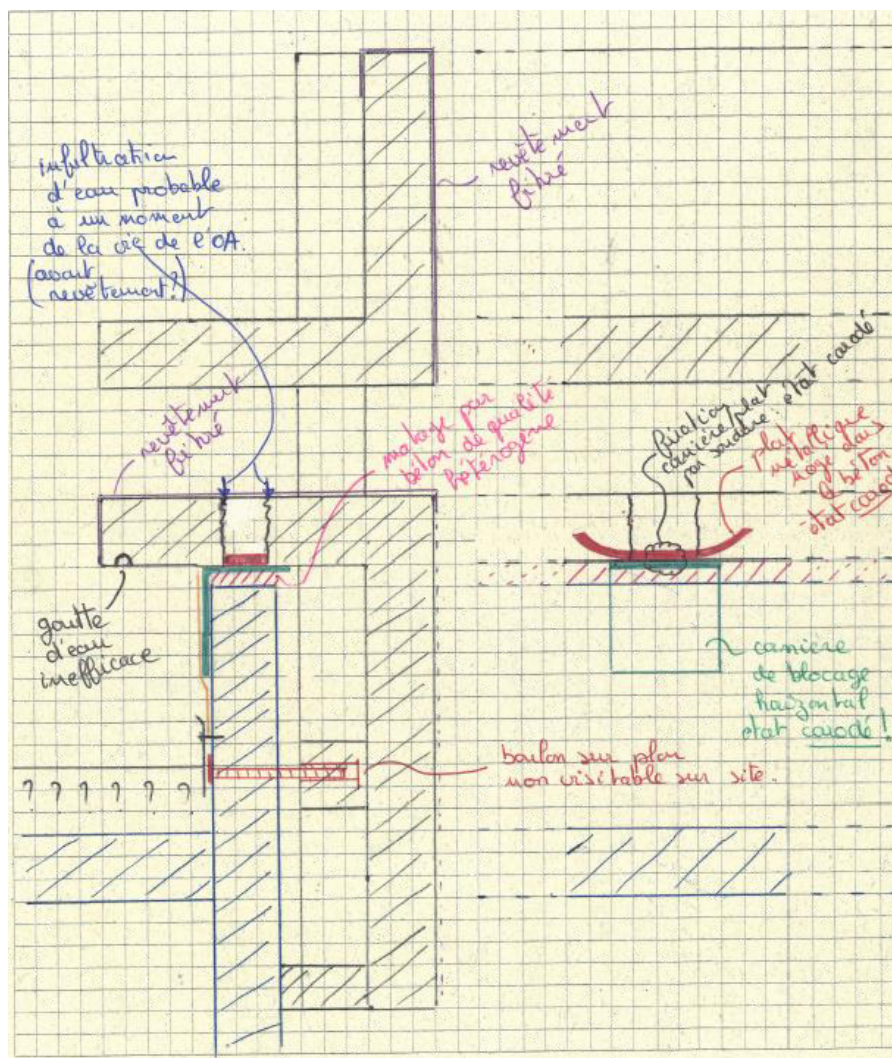 infiltration
d'eau probable
à un moment
de la vie de l'OA.
(avant
revêtement?)
revêtement
fibré
revêtement
fibré
matage par
béton de qualité
hétérogène
fixation
cornière/plat
par soudure: état corrodé
plat
métallique
noyé dans
le béton
- état corrodé
goutte
d'eau
inefficace
cornière
de blocage
horizontal
état corrodé!
boulon sur plan
non visitable sur site.
? ? ? ? ? ?